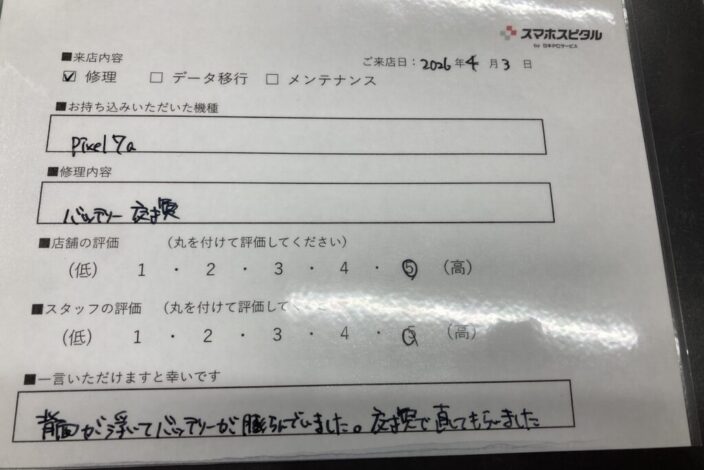 スマホスピタル
by 日本PCサービス
■来店内容
ご来店日：2026年4月3日
☑ 修理 □ データ移行 □ メンテナンス
■お持ち込みいただいた機種
Pixel 7a
■修理内容
バッテリー交換
■店舗の評価 （丸を付けて評価してください）
（低） 1 ・ 2 ・ 3 ・ 4 ・ 5 （高）
■スタッフの評価 （丸を付けて評価して
（低） 1 ・ 2 ・ 3 ・ 4 ・ 5 （高）
■一言いただけますと幸いです
背面が浮いてバッテリーが膨らんでいました。交換で直してもらいました